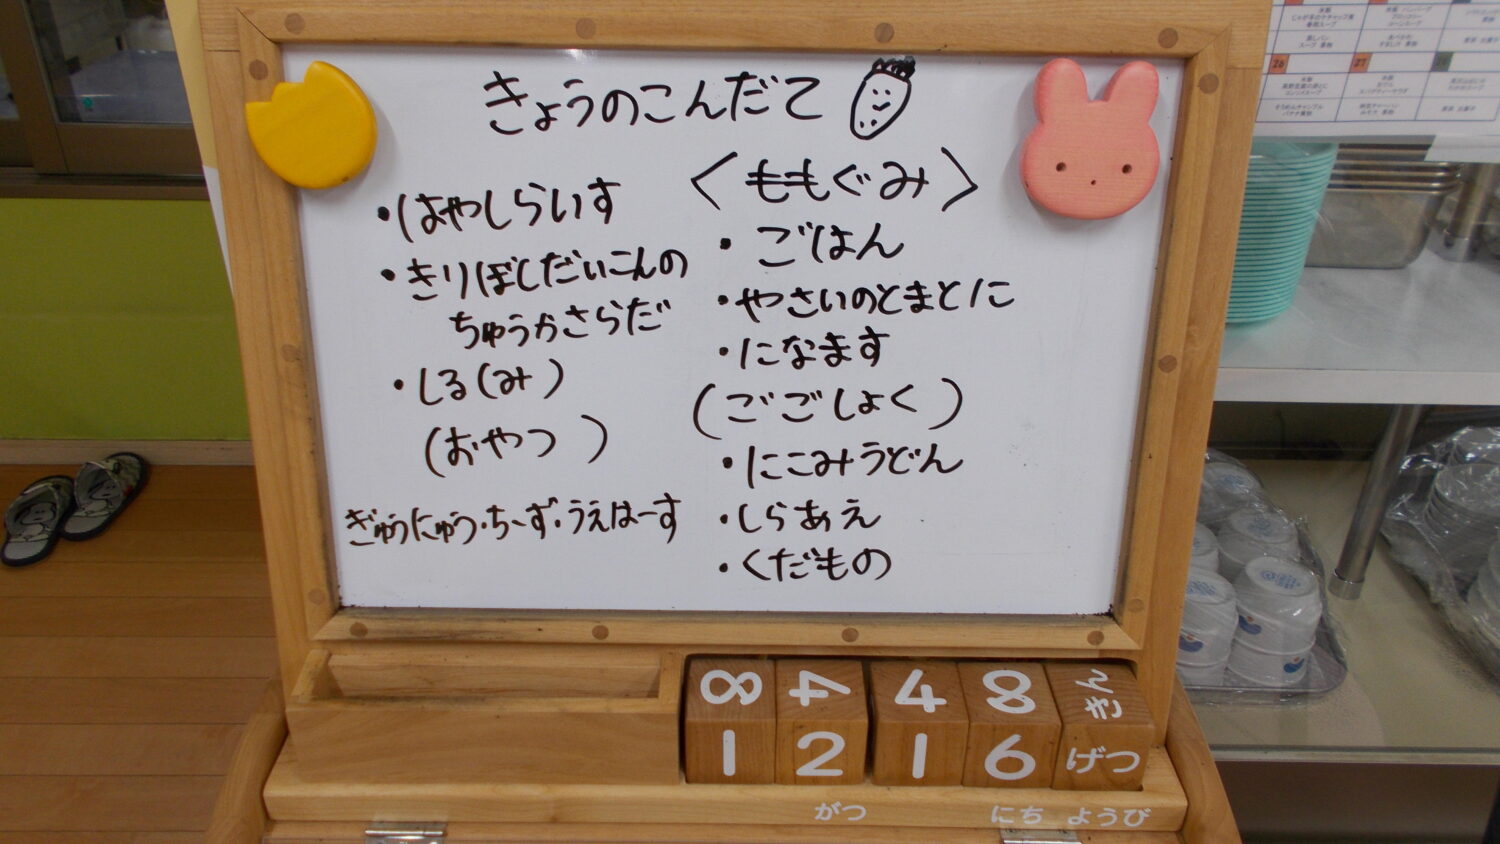 きょうのこんだて
・はやしらいす
・きりぼしだいこんの
ちゅうかさらだ
・しる(み)
(おやつ)
ぎゅうにゅう・ちーず・うえはーす
〈ももぐみ〉
・ごはん
・やさいのとまとに
・になます
(ごごしょく)
・にこみうどん
・しらあえ
・くだもの
8 4 4 8 きん
1 2 1 6 げつ
がつ にち ようび
26
27